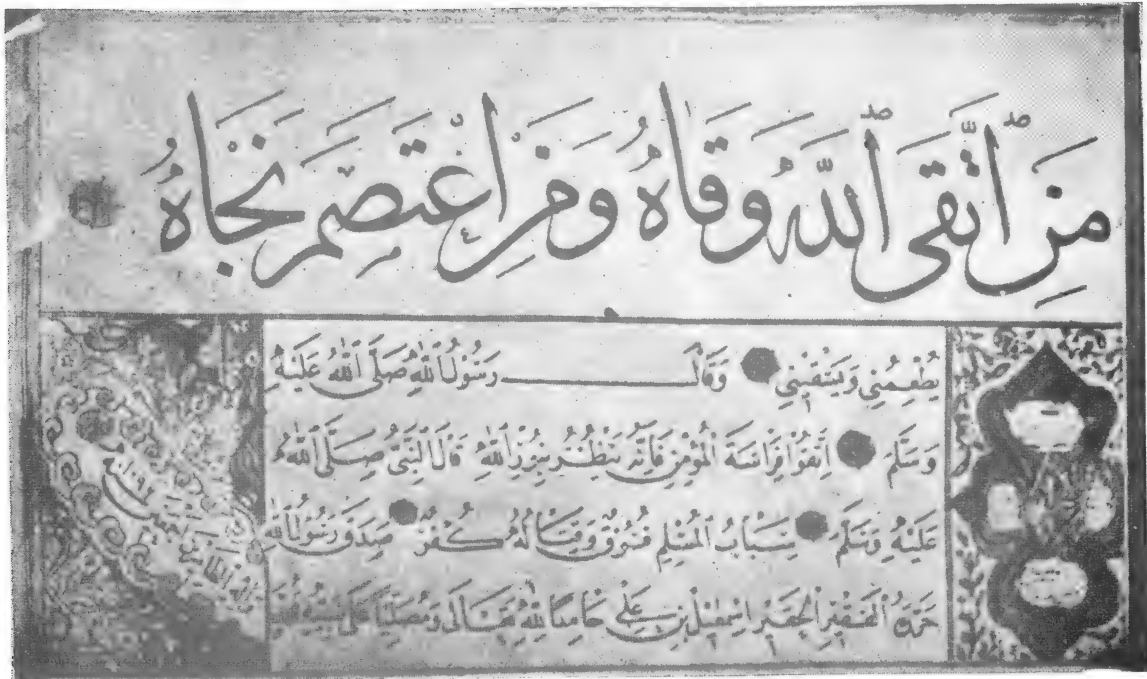 مِنَ ٱتَّقَى ٱللَّهَ وَقَاهُ وَمَنِ اعْتَصَمَ نَجَاهُ
يُطْعِمُنِي وَيَسْقِينِي وَقَالَ رَسُولُ اللّٰهِ صَلَّى اللّٰهُ عَلَيْهِ
وَسَلَّمَ اِتَّقُوا فِرَاسَةَ الْمُؤْمِنِ فَاِنَّهُ يَنْظُرُ بِنُورِ اللّٰهِ قَالَ النَّبِيُّ صَلَّى اللّٰهُ
عَلَيْهِ وَسَلَّمَ سِبَابُ الْمُسْلِمِ فُسُوقٌ وَقِتَالُهُ كُفْرٌ صَدَقَ رَسُولُ اللّٰهِ
حَرَّرَهُ الْفَقِيرُ الْحَقِيرُ اِسْمٰعِيلُ بْنِ عَلِي حَامِدًا لِلّٰهِ تَعَالَى وَمُصَلِّيًا عَلَى